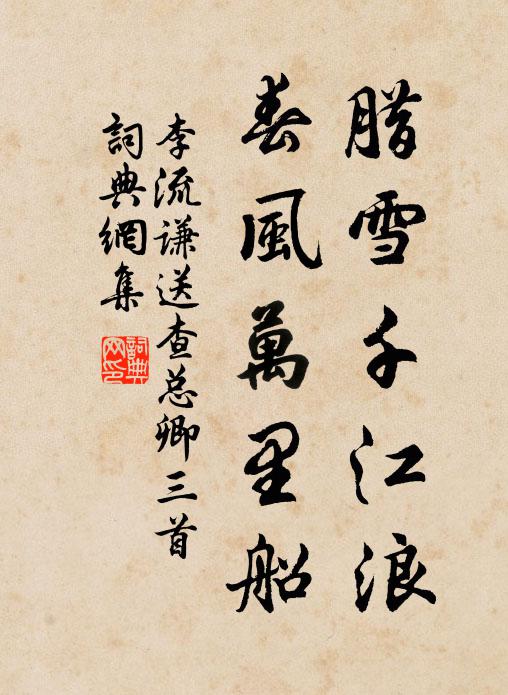 腊雪千江浪
春風萬里船
李流謙送查总卿三首
詞典網集
詞典网印